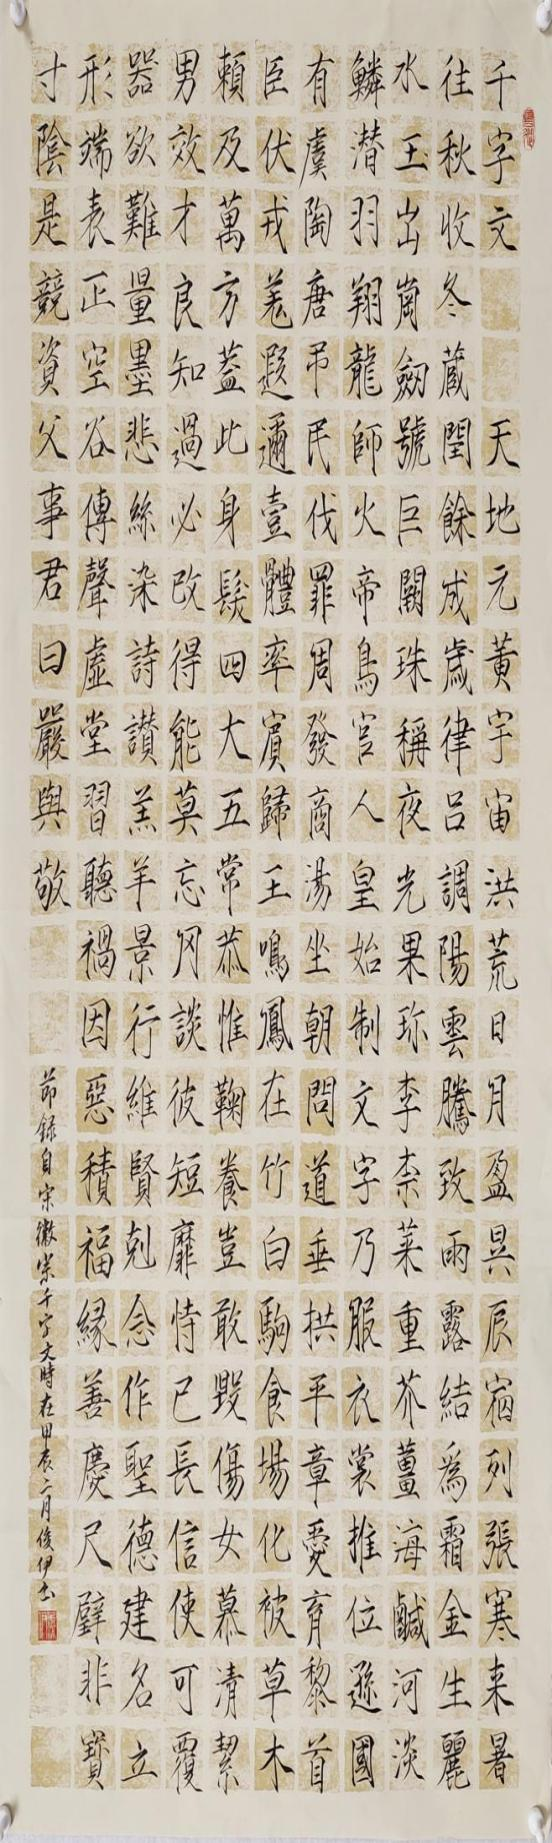 千字文 天地元黃宇宙洪荒日月盈昃辰宿列張寒来暑
往秋收冬蔵閏餘成歲律吕調陽雲騰致雨露結為霜金生麗
水玉出崗劒號巨闕珠稱夜光果珎李柰菜重芥薑海鹹河淡
鱗潜羽翔龍師火帝鳥官人皇始制文字乃服衣裳推位遜國
有虞陶唐弔民伐罪周發商湯坐朝問道垂拱平章愛育黎首
臣伏戎羌遐邇壹體率賓歸王鳴鳳在竹白駒食場化被草木
賴及萬方蓋此身髮四大五常恭惟鞠養豈敢毀傷女慕清絜
男效才良知過必改得能莫忘罔談彼短靡恃己長信使可覆
器欲難量墨悲絲染詩讃羔羊景行維賢剋念作聖德建名立
形端表正空谷傳聲虛堂習聽禍因惡積福緣善慶尺璧非寶
寸陰是競資父事君曰嚴與敬
節録自宋徽宗千字文時在甲辰二月俊伊书